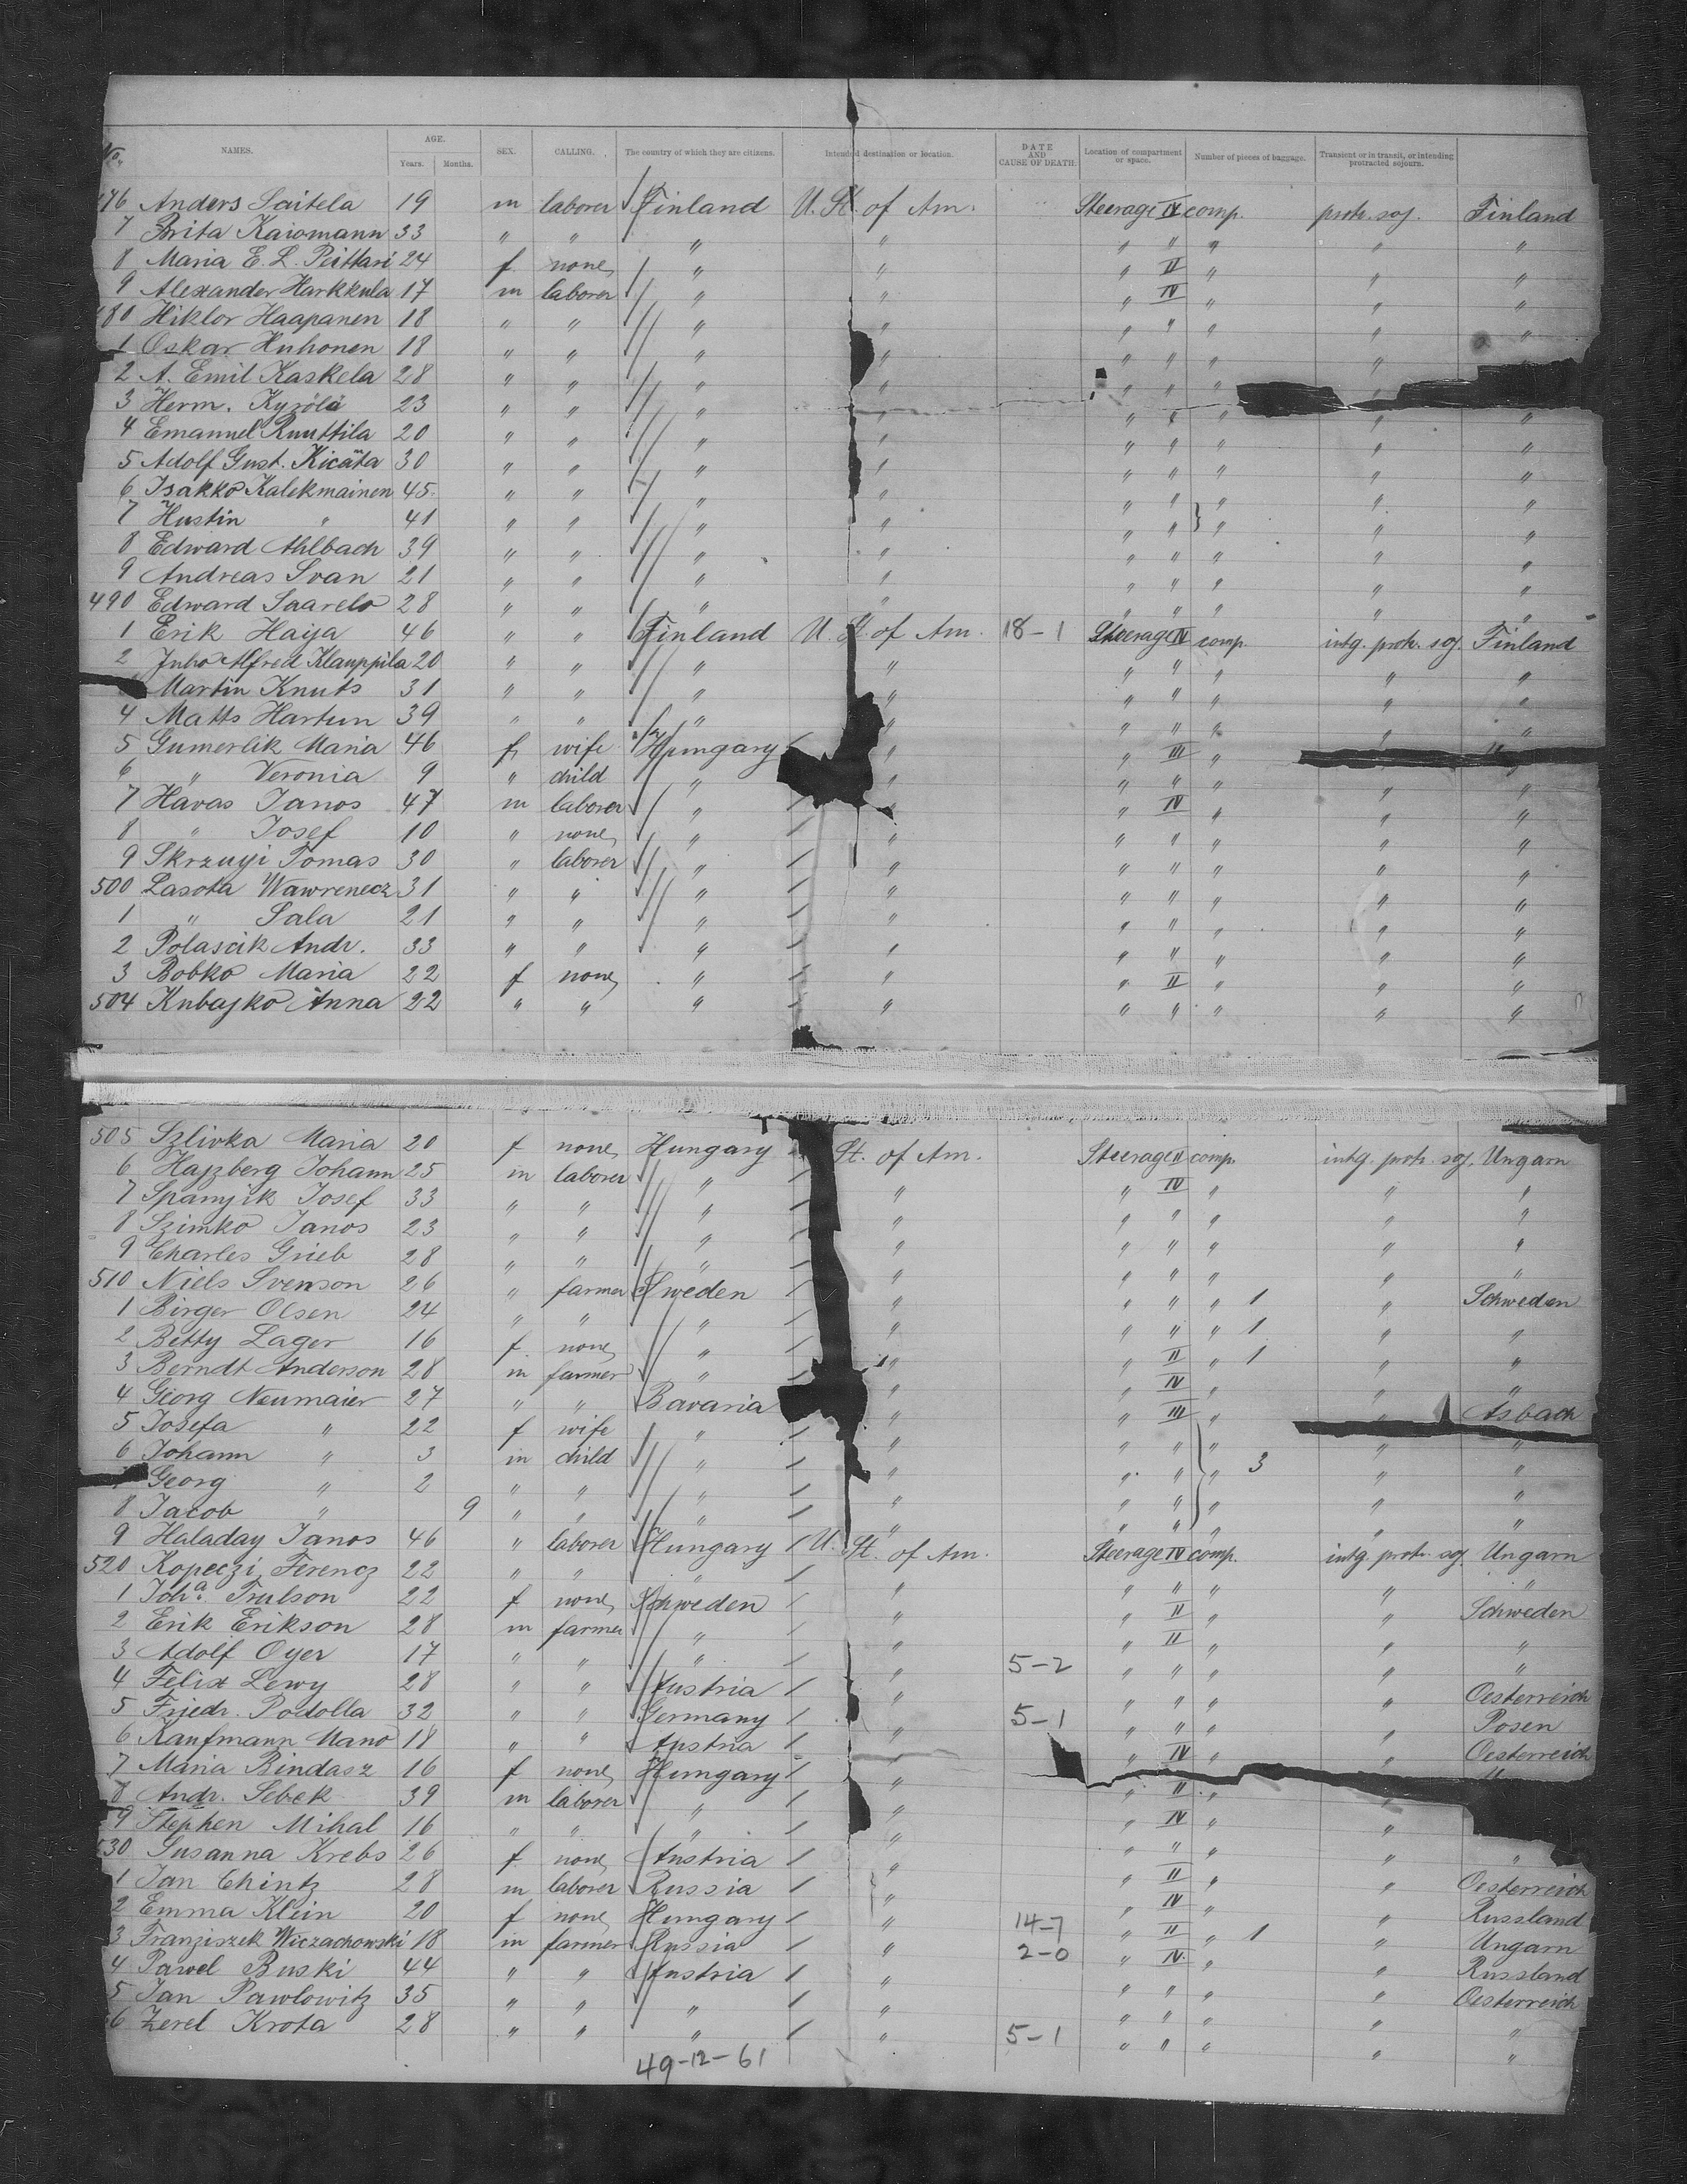 No. NAMES. AGE. Years. Months. SEX. CALLING. The country of which they are citizens. Intended destination or location. DATE AND CAUSE OF DEATH. Location of compartment or space. Number of pieces of baggage. Transient or in transit, or intending protracted sojourn.
476 Anders Saitela 19 m laborer Finland U. St. of Am. Steerage IV comp. protr. soj. Finland
7 Brita Kaiomann 33 " " " " " " " " "
8 Maria E. L. Peittari 24 f. none " " " II " " "
9 Alexander Harkkula 17 m laborer " " " IV " " "
480 Hiklor Haapanen 18 " " " " " " " " "
1 Oskar Huhonen 18 " " " " " " " " "
2 A. Emil Kaskela 28 " " " " " " " "
3 Herm. Kyrölä 23 " " " " " " " " "
4 Emanuel Ruuttila 20 " " " " " " " " "
5 Adolf Gust. Kicäta 30 " " " " " " " " "
6 Isakko Kalekmainen 45 " " " " " " " " "
7 Hustin " 41 " " " " " " " " "
8 Edward Ahlbach 39 " " " " " " " " "
9 Andreas Svan 21 " " " " " " " " "
490 Edward Saarelo 28 " " " " " " " " "
1 Erik Haija 46 " " Finland U. St. of Am. 18-1 Steerage IV comp. intg. protr. soj. Finland
2 Juho Alfred Klauppila 20 " " " " " " " " "
Martin Knuts 31 " " " " " " " " "
4 Matts Hartun 39 " " " " " " " " "
5 Gumerlik Maria 46 f. wife Hungary " " III "
6 " Veronia 9 " child " " " " " " "
7 Havas Janos 47 m laborer " " " IV " " "
8 " Josef 10 " none " " " " " " "
9 Skrzuyi Tomas 30 " laborer " " " " " " "
500 Lasota Wawrenecz 31 " " " " " " " " "
1 " Sala 21 " " " " " " " " "
2 Polascik Andr. 33 " " " " " " " " "
3 Bobko Maria 22 f none " " " II " " "
504 Kubajko Anna 22 " " " " " " " " "
505 Szlivka Maria 20 f none Hungary St. of Am. Steerage II comp. intg. protr. soj. Ungarn
6 Hajzberg Johann 25 m laborer " " IV " " "
7 Spanyik Josef 33 " " " " " " " " "
8 Szimko Janos 23 " " " " " " " " "
9 Charles Grieb 28 " " " " " " " " "
510 Niels Svenson 26 " farmer Sweden " " " " 1 " Schweden
1 Birger Olsen 24 " " " " " " " 1 " "
2 Betty Lager 16 f. none " " " II " 1 " "
3 Berndt Anderson 28 m farmer " " " IV " " "
4 Georg Neumaier 27 " " Bavaria " " III " " Asbach
5 Josefa " 22 f wife " " " " " " "
6 Johann " 3 m child " " " " " 3 " "
Georg " 2 " " " " " " " " "
8 Jacob " 9 " " " " " " " " "
9 Haladay Janos 46 " laborer Hungary U. St. of Am. Steerage IV comp. intg. protr. soj. Ungarn
520 Kopeczi Ferencz 22 " " " " " " " " "
1 Joh.a Trulson 22 f none Schweden " " II " " Schweden
2 Erik Erikson 28 m farmer " " " II " " "
3 Adolf Oyer 17 " " " " 5-2 " " " " "
4 Felix Lewy 28 " " Austria " " " " " Oesterreich
5 Friedr. Podolla 32 " " Germany " 5-1 " " " " Posen
6 Kaufmann Mano 18 " " Austria " " IV " " Oesterreich
7 Maria Rindasz 16 f none Hungary " " II "
8 Andr. Sebek 39 m laborer " " " IV " "
9 Stephen Mihal 16 " " " " " " " " "
530 Susanna Krebs 26 f none Austria " " II " " Oesterreich
1 Jan Chintz 28 m laborer Russia " " IV " " Russland
2 Emma Klein 20 f none Hungary " 14-7 " II " 1 " Ungarn
3 Franziszek Wiczachowski 18 m farmer Russia " 2-0 " IV " " Russland
4 Pawel Buski 44 " " Austria " " " " " Oesterreich
5 Jan Pawlowitz 35 " " " " " " " " "
6 Zerel Krota 28 " " " " 5-1 " " " " "
49-12-61